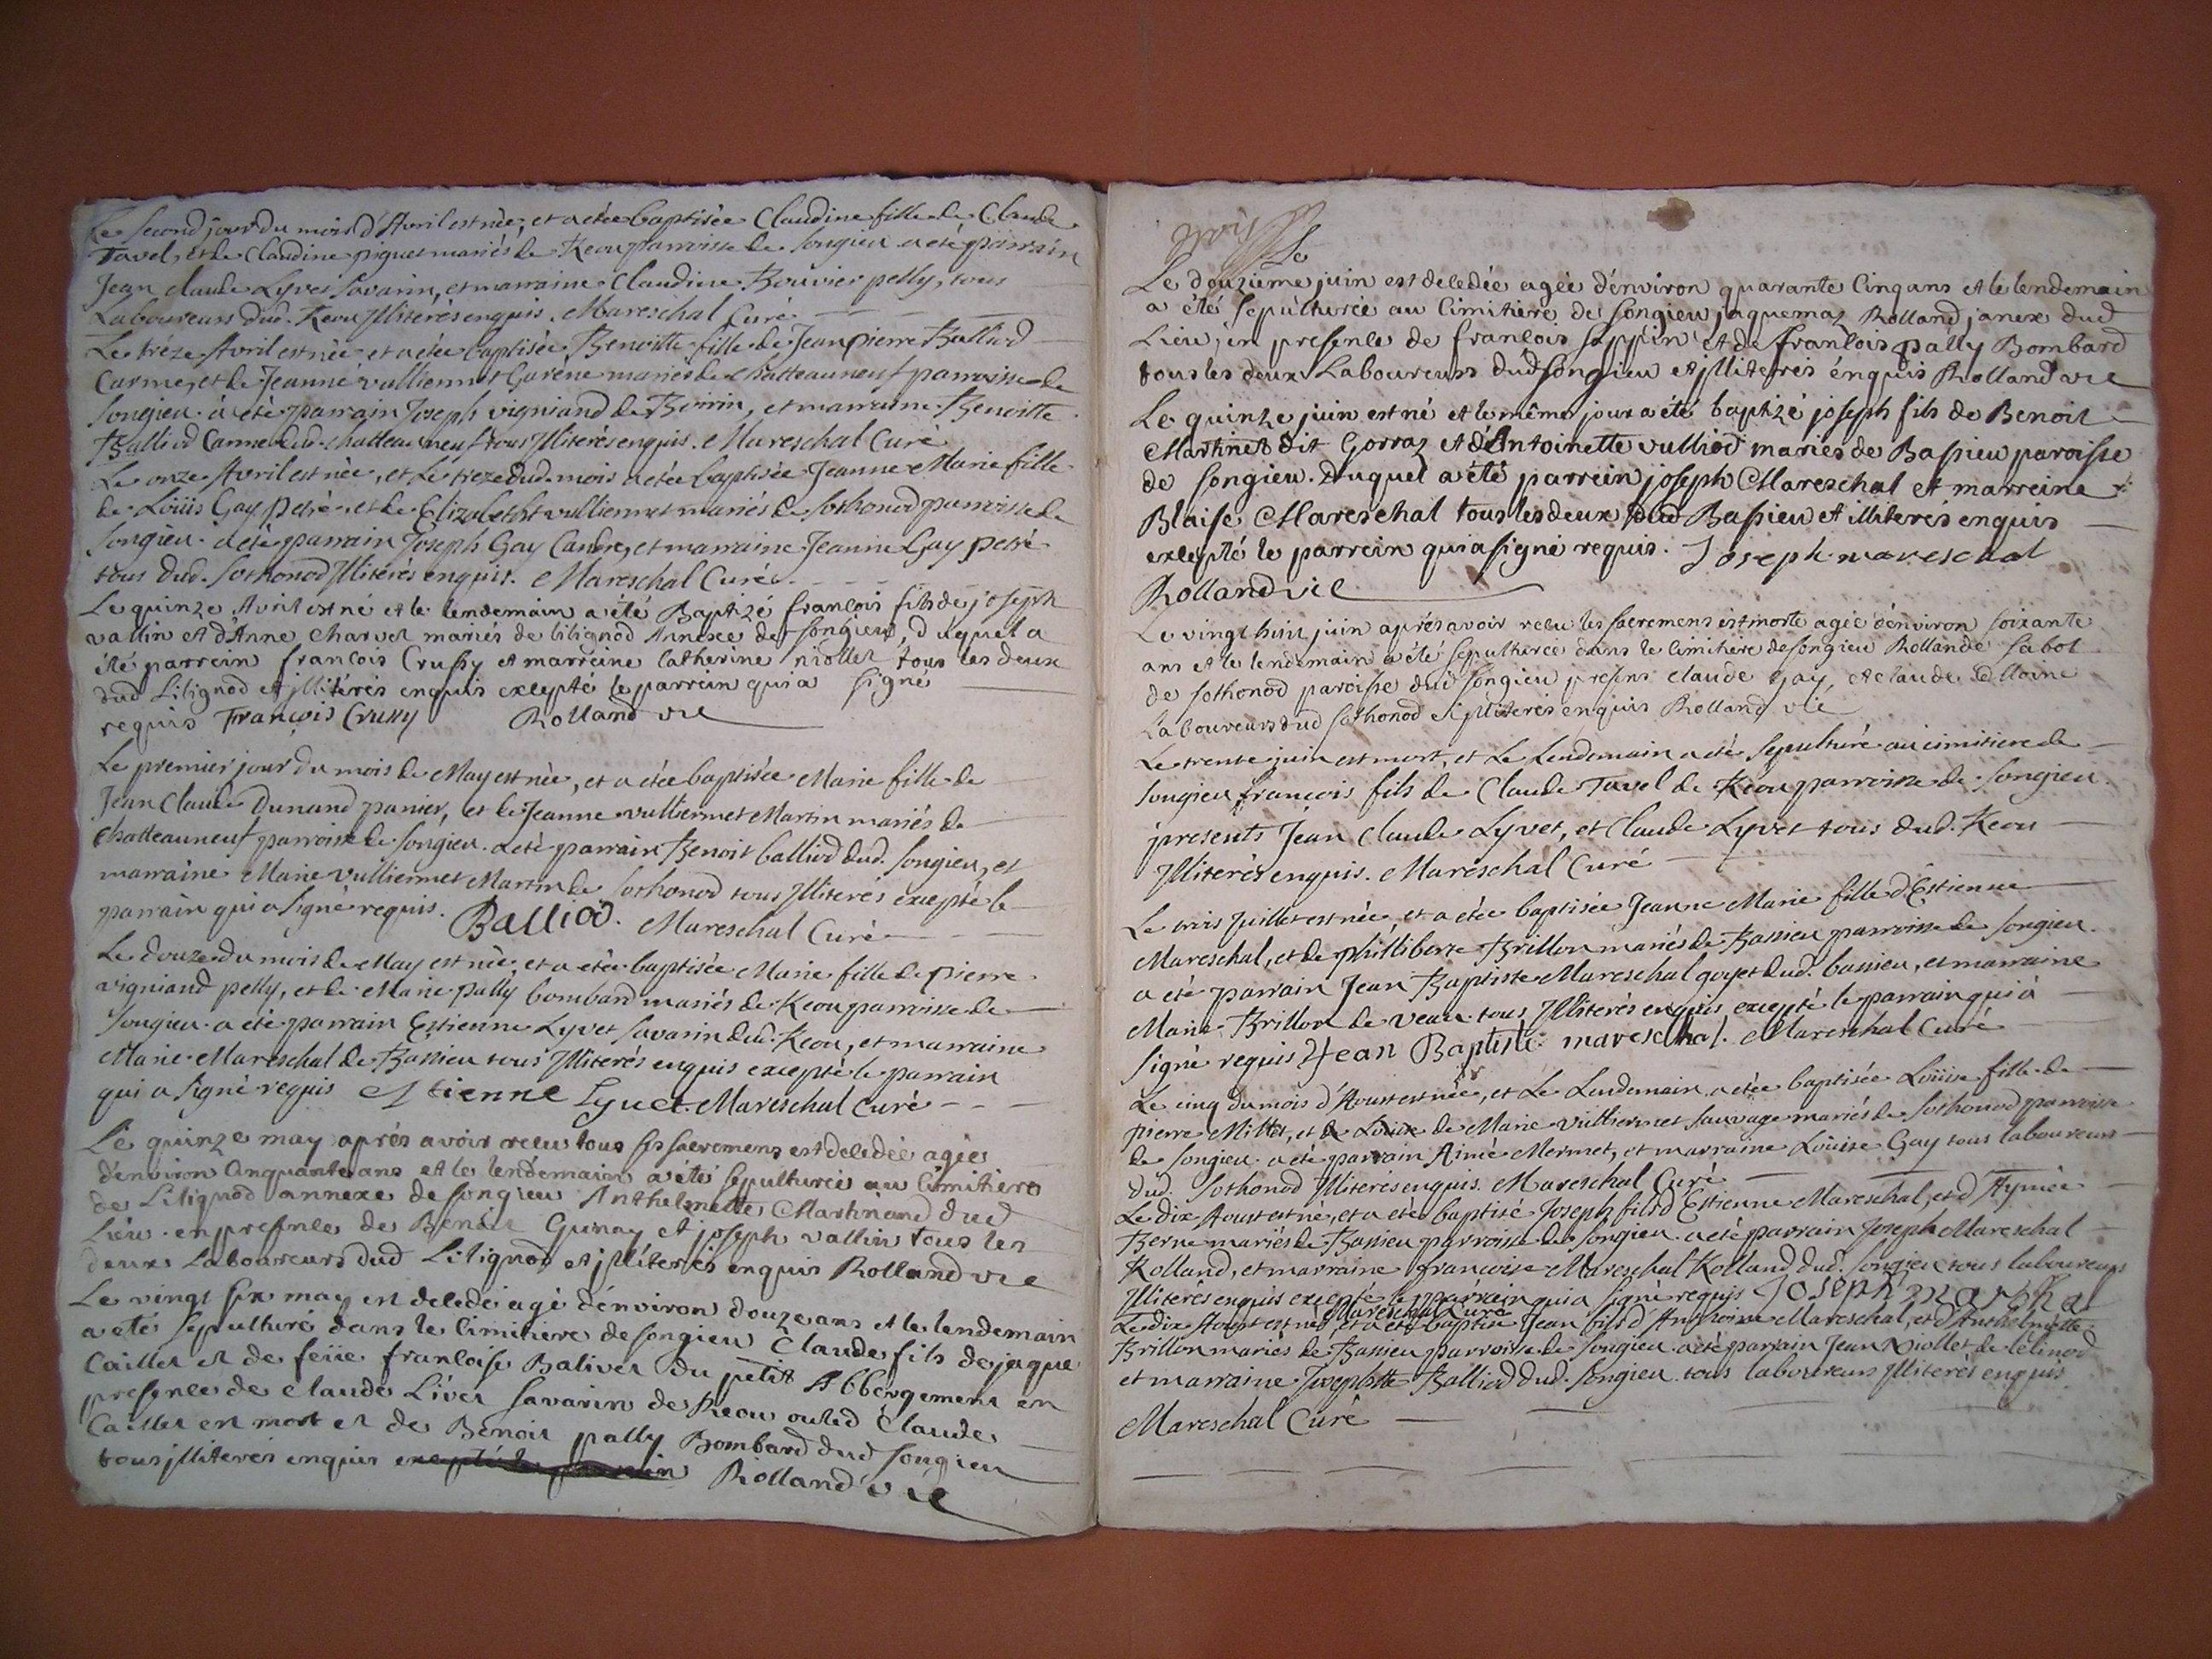 Le second jour du mois d'Avril est née, et a étée baptisée Claudine fille de Claude
Tavel, et de Claudine piguet mariés de Keou parroisse de songieu a eté parrain
Jean claude Lyvet savarin, et marraine Claudine Bouvier pelly, tous
Laboureurs dud. Keou Illiterés enquis. Mareschal Curé
Le tréze Avril est née et a étée baptisée Benoitte fille de Jean pierre Balliod
Carme, et de Jeanne vulliermet Garene mariés de chatteauneuf parroisse de
songieu. à eté parrain Joseph vigniand de Boirin, et marraine Benoitte
Balliod Carme dud. chatteauneuf tous Illiterés enquis. Mareschal Curé
Le onze Avril est née, et Le treze dud. mois a étée baptisée Jeanne Marie fille
de Loüis Gay petré, et de Elizabetht vulliermet mariés de sothonod parroisse de
songieu. a été parrain Joseph Gay Cambre, et marraine Jeanne Gay petré
tous dud. sothonod Illiterés enquis. Mareschal Curé
Le quinze Avril est né et le lendemain a été Baptizé francois fils de joseph
vallin et d'Anne Charvet mariés de lilignod Annexe de songieu, duquel a
été parrein francois Crussy et marreine Catherine niollet tous les deux
dud Lilignod et jlliterés enquis excepté le parrein qui a signé
requis François Crussy Rolland vic
Le premier jour du mois de May est née, et a étée baptisée Marie fille de
Jean Claude Dunand panier, et de Jeanne vulliermet Martin mariés de
chatteauneuf parroisse de songieu. a eté parrain Benoit balliod dud. songieu, et
marraine Marie vulliermet Martin de sothonod tous Illiterés excepté le
parrain qui a signé requis. Balliod. Mareschal Curé
Le douze du mois de May est née, et a étée baptisée Marie fille de pierre
vigniand pelly, et de Marie pally bombard mariés de Keou parroisse de
songieu. a eté parrain Estienne Lyvet savarin dud. Keou, et marraine
Marie Mareschal de Bassieu tous Illiterés enquis excepté le parrain
qui a signé requis Etienne Lyuet. Mareschal Curé
Le quinze may aprés avoir recu tous ses sacremens est decedée agée
d'environ Cinquante ans et le lendemain a été sepulturée au Cimitiere
de Lilignod annexe de songieu Anthelmette Martinand dud
Lieu. en presence de Benoit Gunay et joseph vallin tous les
deux Laboureurs dud Lilignod et jlliterés enquis Rolland vic
Le vingt six may est decedé agé d'environ douze ans et le lendemain
a eté sepulturé dans le Cimitiere de songieu Claude fils de jaque
Caillet et de feüe francoise Balivet du petit Abbergement en
presence de Claude Livet savarin de Keou ou led Claude
Caillet est mort et de Benoit pally Bombard dud songieu
tous jlliterés enquis excepté le parrein Rolland vic
Le
Le douzieme juin est decedée agée d'environ quarante Cinq ans et le lendemain
a été sepulturée au Cimitiere de songieu jaquemaz Rolland janex dud
Lieu, en presence de francois seppin et de francois pally Bombard
tous les deux Laboureurs dud songieu et jlliterés enquis Rolland vic
Le quinze juin est né et le même jour a été baptizé joseph fils de Benoit
Martinet dit Gorraz et d'Antoinette vulliod mariés de Bassieu paroisse
de songieu. Duquel a été parrein joseph Mareschal et marreine
Blaise Mareschal tous les deux dud Bassieu et illiterés enquis
excepté le parrein qui a signé requis. Joseph mareschal
Rolland vic
Le vingt huit juin aprés avoir recu les sacremens est morte agée d'environ soixante
ans et le lendemain a été sepulturée dans le Cimitiere de songieu Rollande sabot
de sothonod paroisse dud songieu presens claude Gay, et claude
Laboureurs dud sothonod et jlliterés enquis Rolland vic
Le trente juin est mort, et Le Lendemain a eté sepulturé au cimitiere de
songieu françois fils de Claude Tavel de Keou parroisse de songieu
presents Jean Claude Lyvet, et Claude Lyvet tous dud. Keou
Illiterés enquis. Mareschal Curé
Le trois Juillet est née, et a étée baptisée Jeanne Marie fille d'Estienne
Mareschal, et de philliberte Brillon mariés de Bassieu parroisse de songieu.
a eté parrain Jean Baptiste Mareschal goyet dud. bassieu, et marraine
Marie Brillon de veau tous Illiterés enquis excepté le parrain qui à
signé requis Jean Baptiste mareschal. Mareschal Curé
Le cinq du mois d'Aoust est née, et Le Lendemain a étée baptisée Loüise fille de
pierre Millet, et de Louise de Marie vulliermet sauvage mariés de sothonod parroisse
de songieu. a eté parrain Aimé Mermet, et marraine Loüise Gay tous laboureurs
dud. sothonod Illiterés enquis. Mareschal Curé
Le dix Aoust est né, et a eté baptisé Joseph fils d'Estienne Mareschal, et d'Aymée
Berne mariés de Bassieu parroisse de songieu. a eté parrain Joseph Mareschal
Rolland, et marraine francoise Mareschal Rolland dud. songieu tous laboureurs
Illiterés enquis excepté le parrain qui a signé requis Joseph marchal
Mareschal Curé
Le dix Aoust est né, et a eté baptisé Jean fils d'Anthoine Mareschal, et d'Anthelmette
Brillon mariés de Bassieu parroisse de songieu a eté parrain Jean Niollet de lelinod
et marraine Josephte Balliod dud. songieu tous laboureurs Illiterés enquis
Mareschal Curé